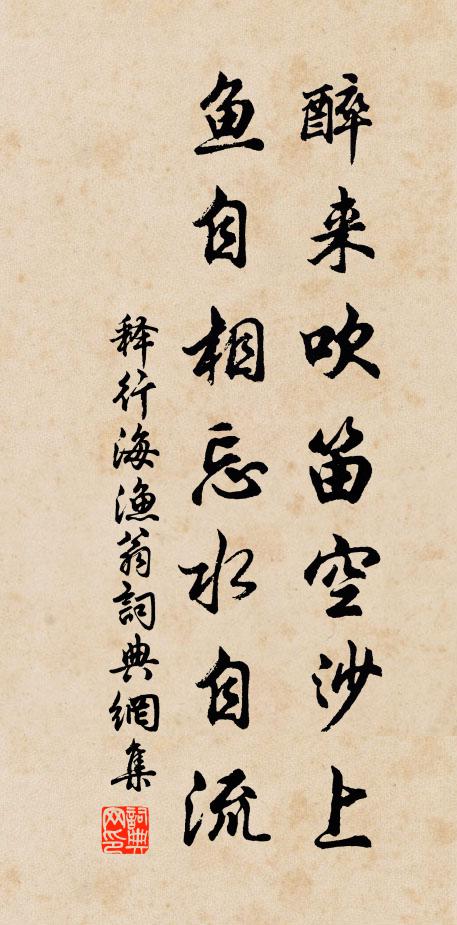 醉来吹笛空沙上
鱼自相忘水自流
释行海漁翁詞典網集
詞典网印